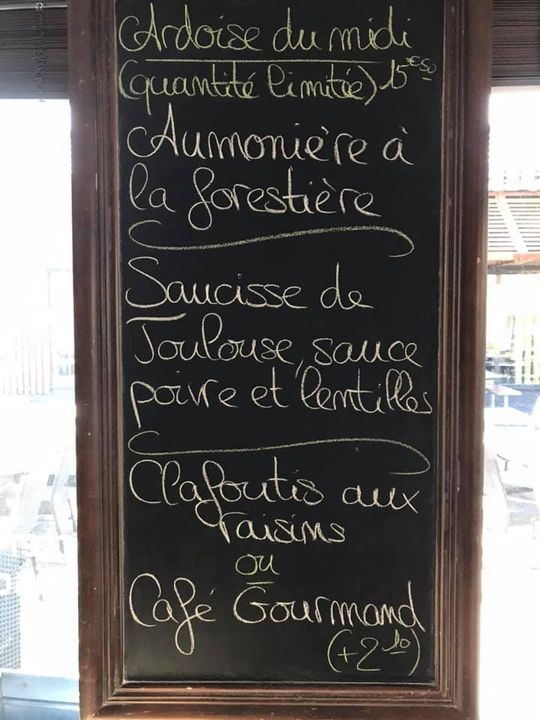 Ardoise du midi
(quantité limitée) 15€50
Aumonière à
la forestière
Saucisse de
Toulouse, sauce
poivre et lentilles
Clafoutis aux
raisins
ou
Café Gourmand
(+2 10)